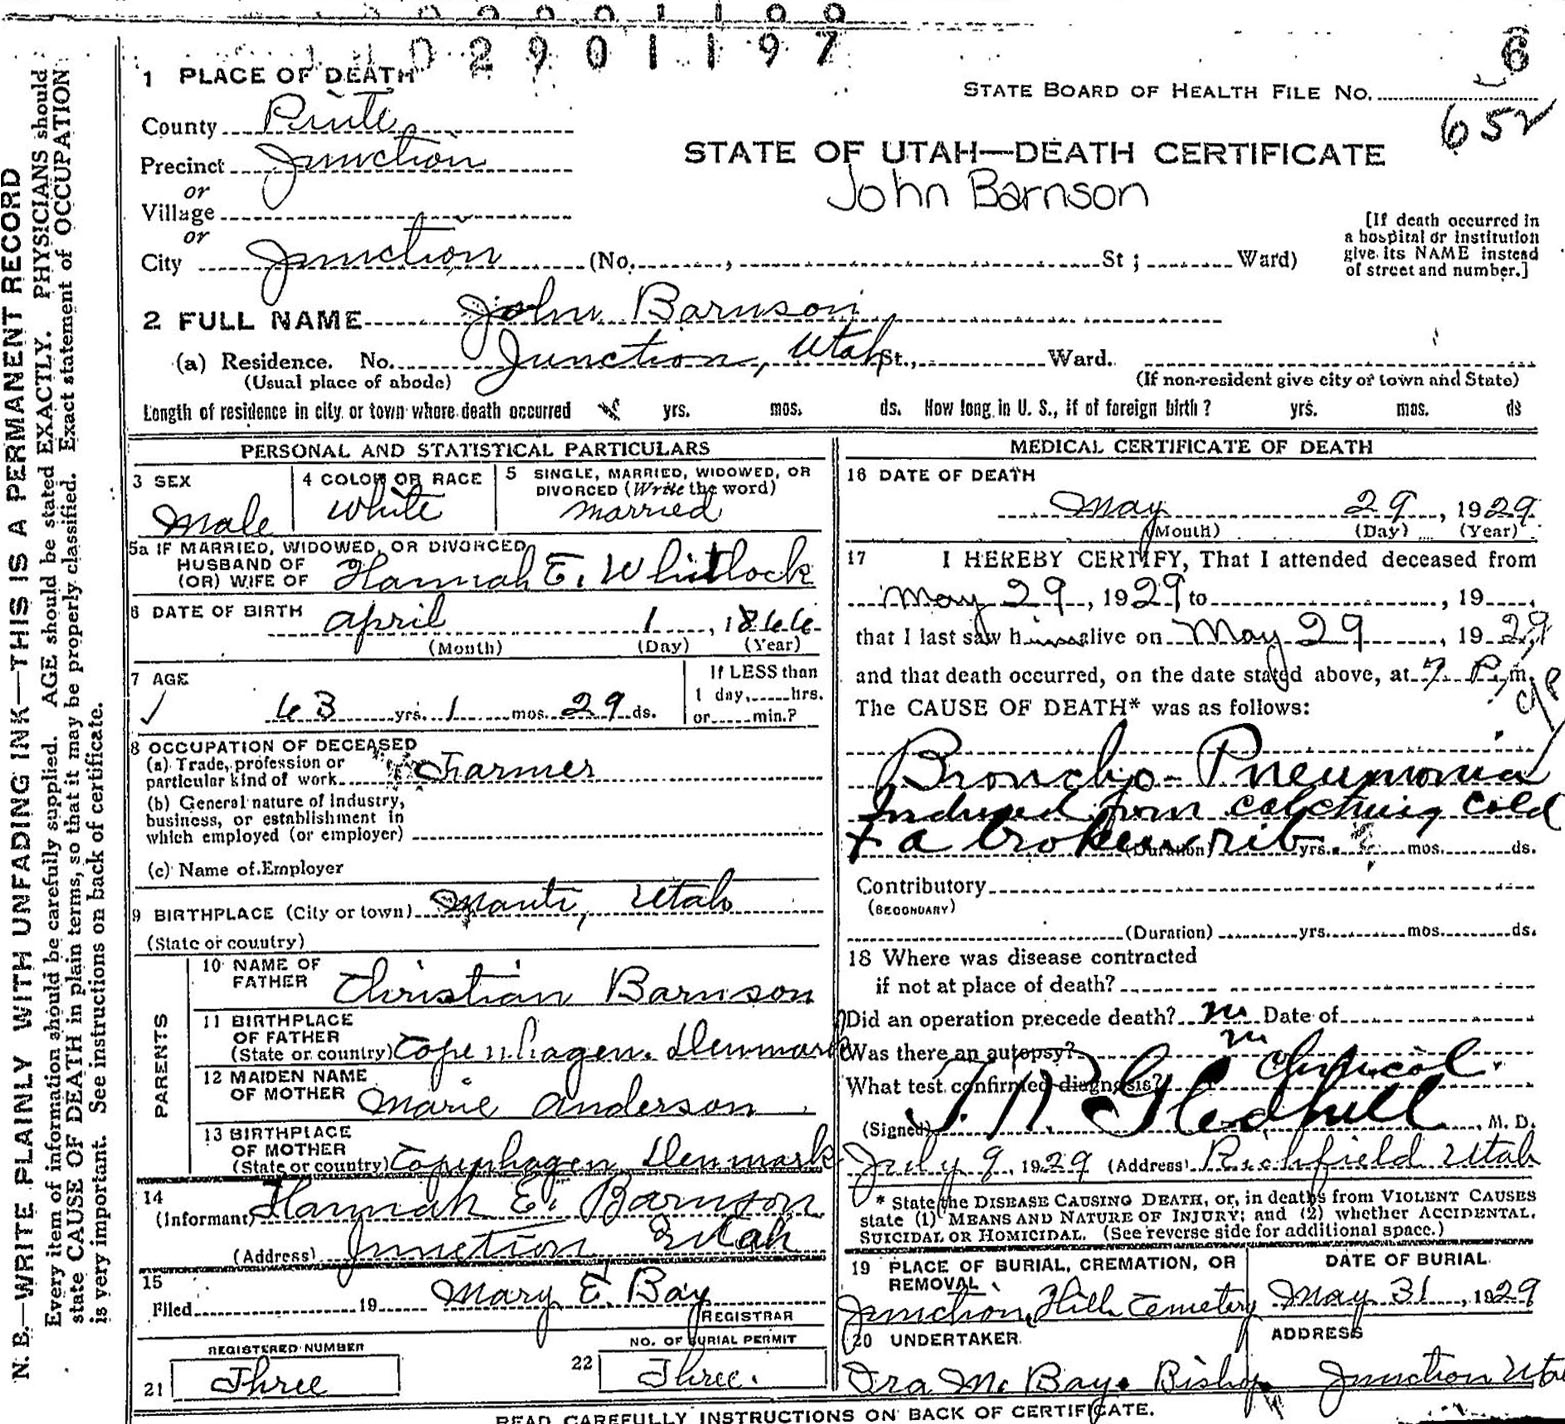 02901197
6
1 PLACE OF DEATH
STATE BOARD OF HEALTH FILE NO.
652
County Piute
Precinct Junction
or
Village
or
City Junction (No. , St ; Ward)
STATE OF UTAH—DEATH CERTIFICATE
John Barnson
[If death occurred in
a hospital or institution
give its NAME instead
of street and number.]
2 FULL NAME John Barnson
(a) Residence. No. Junction, Utah St., Ward.
(Usual place of abode) (If non-resident give city or town and State)
Length of residence in city or town where death occurred yrs. mos. ds. How long in U. S., if of foreign birth? yrs. mos. ds
PERSONAL AND STATISTICAL PARTICULARS
3 SEX
Male
4 COLOR OR RACE
White
5 SINGLE, MARRIED, WIDOWED, OR
DIVORCED (Write the word)
Married
5a IF MARRIED, WIDOWED, OR DIVORCED
HUSBAND OF
(OR) WIFE OF Hannah E. Whitlock
6 DATE OF BIRTH April 1, 1866
(Month) (Day) (Year)
7 AGE
63 yrs. 1 mos. 29 ds.
If LESS than
1 day, hrs.
or min.?
8 OCCUPATION OF DECEASED
(a) Trade, profession or
particular kind of work Farmer
(b) General nature of Industry,
business, or establishment in
which employed (or employer)
(c) Name of Employer
9 BIRTHPLACE (City or town) Manti, Utah
(State or country)
PARENTS
10 NAME OF
FATHER Christian Barnson
11 BIRTHPLACE
OF FATHER
(State or country) Copenhagen. Denmark
12 MAIDEN NAME
OF MOTHER Marie Anderson
13 BIRTHPLACE
OF MOTHER
(State or country) Copenhagen, Denmark
14
(Informant) Hannah E. Barnson
(Address) Junction Utah
15
Filed 19 Mary E. Bay
REGISTRAR
REGISTERED NUMBER
21 Three
NO. OF BURIAL PERMIT
22 Three.
MEDICAL CERTIFICATE OF DEATH
16 DATE OF DEATH
May 29, 1929
(Month) (Day) (Year)
17 I HEREBY CERTIFY, That I attended deceased from
May 29, 1929 to , 19
that I last saw him alive on May 29, 1929
and that death occurred, on the date stated above, at 7 P. m.
The CAUSE OF DEATH* was as follows:
Broncho-Pneumonia
Induced from catching cold
+ a broken rib.
(Duration) yrs. mos. ds.
Contributory
(SECONDARY)
(Duration) yrs. mos. ds.
18 Where was disease contracted
if not at place of death?
Did an operation precede death? no Date of
Was there an autopsy? no
What test confirmed diagnosis? Clinical.
(Signed) T. R. Gledhill, M. D.
July 9, 1929 (Address) Richfield Utah
* State the DISEASE CAUSING DEATH, or, in deaths from VIOLENT CAUSES
state (1) MEANS AND NATURE OF INJURY; and (2) whether ACCIDENTAL,
SUICIDAL OR HOMICIDAL. (See reverse side for additional space.)
19 PLACE OF BURIAL, CREMATION, OR
REMOVAL
Junction, Hill Cemetery
DATE OF BURIAL
May 31, 1929
20 UNDERTAKER
Ira Mc Bay. Bishop
ADDRESS
Junction Utah
READ CAREFULLY INSTRUCTIONS ON BACK OF CERTIFICATE.
N. B.—WRITE PLAINLY WITH UNFADING INK—THIS IS A PERMANENT RECORD
Every item of information should be carefully supplied. AGE should be stated EXACTLY. PHYSICIANS should
state CAUSE OF DEATH in plain terms, so that it may be properly classified. Exact statement of OCCUPATION
is very important. See instructions on back of certificate.